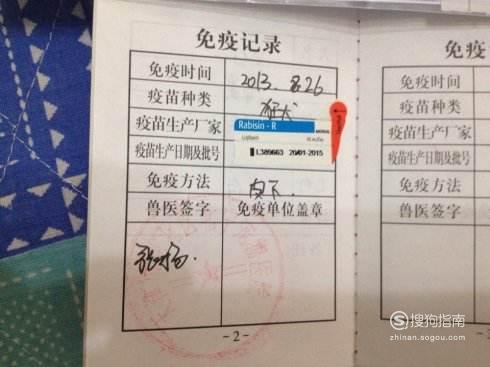 免疫记录
免疫时间 2013. 8.26
疫苗种类 狂犬
疫苗生产厂家 Rabisin - R
疫苗生产日期及批号 L389663 20/01-2015
免疫方法 皮下.
兽医签字 免疫单位盖章
- 2 -
免疫
免疫时间
疫苗种类
疫苗生产厂家
疫苗生产日期及批号
免疫方法
兽医签字
搜狗指南
zhinan.sogou.com